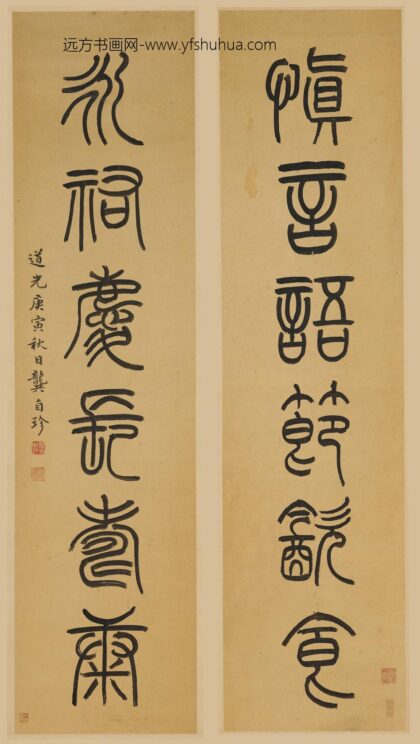 远方书画网-www.yfshuhua.com
慎言語節飲食
永祐慶長壽康
道光庚寅秋日龔自珍